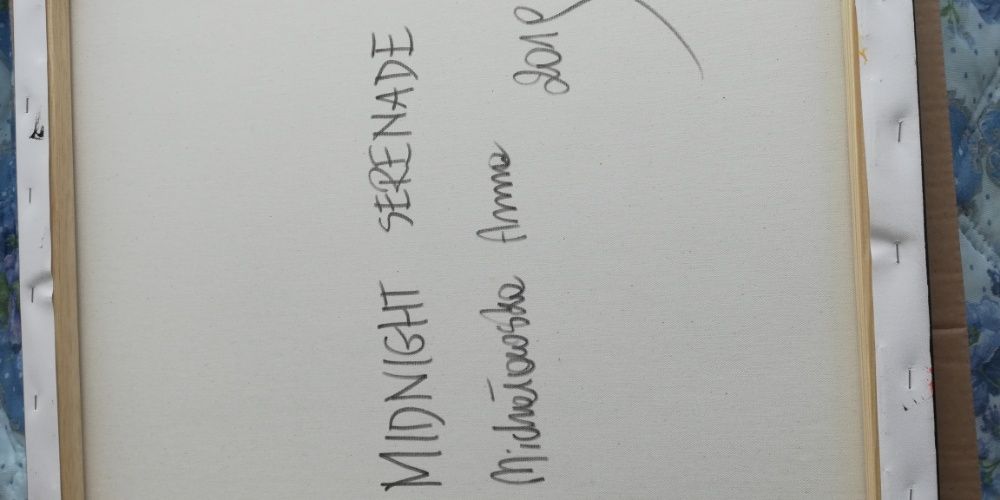 MIDNIGHT SERENADE
Michałowska Anna